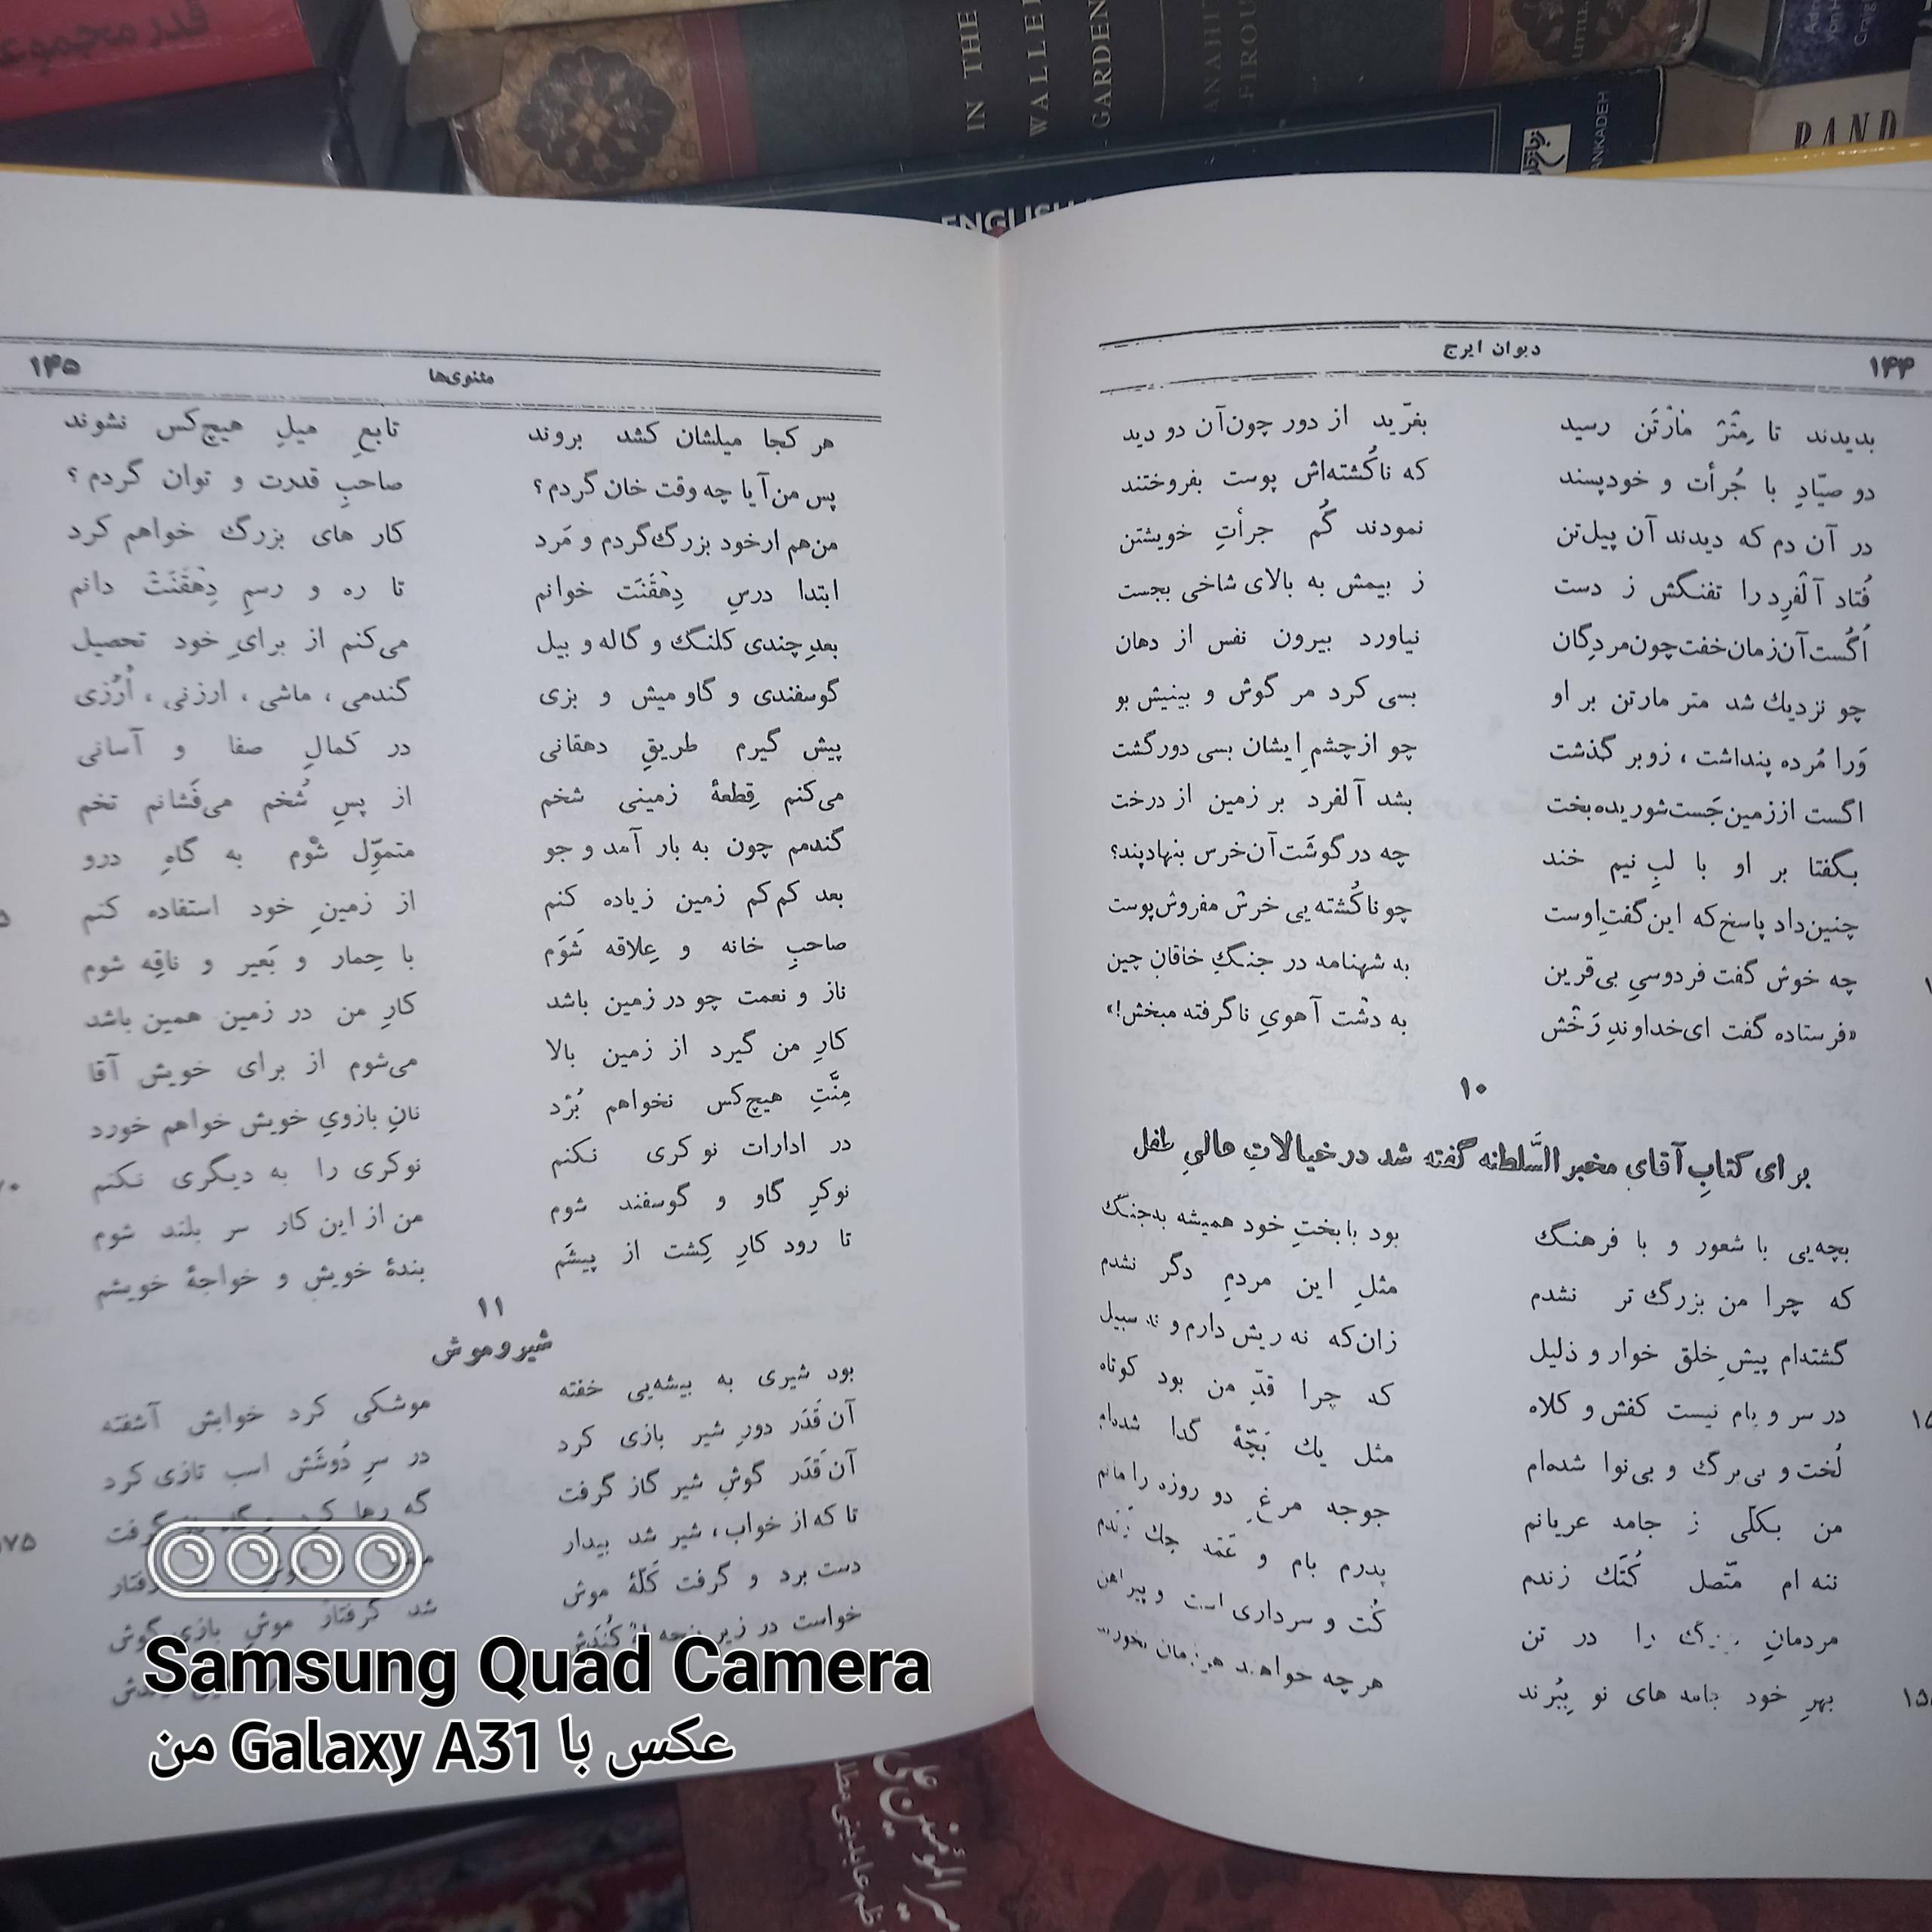 قدر مجموعه
IN THE
WALLED
GARDEN
ANAHI
FIROU
LITTLE
ANKADEH
RAND
ENGLISH
۱۴۴
دیوان ایرج
بدیدند تا مِتْرْ مٰارْتَن رسید بغرّید از دور چون‌آن دو دید
دو صیّادِ با جُرأت و خودپسند که ناکُشته‌اش پوست بفروختند
در آن دم که دیدند آن پیل‌تن نمودند گُم جرأتِ خویشتن
فُتاد آلْفرِد را تفنگش ز دست ز بیمش به بالای شاخی بجست
اُگُست‌آن‌زمان‌خفت‌چون‌مردِگان نیاورد بیرون نفس از دهان
چو نزدیك شد متر مارتن بر او بسی کرد مر گوش و بینیش بو
وَرا مُرده پنداشت ، زو بر گذشت چو از چشمِ ایشان بسی دورگشت
اگست اززمین‌جَست‌شوریده‌بخت بشد آلفرد بر زمین از درخت
بگفتا بر او با لبِ نیم خند چه در گوشَت‌آن‌خرس بنهادپند؟
چنین‌داد پاسخ‌که این‌گفتِ‌اوست چو ناکُشته یی خرسْ مفروش‌پوست
چه خوش گفت فردوسیِ بی‌قرین به شهنامه در جنگِ خاقانِ چین
«فرستاده گفت ای‌خداوندِ رَخْش به دشت آهویِ ناگرفته مبخش!»
۱۰
برای کتابِ آقای مخبر السَّلطنه گفته شد در خیالاتِ عالیِ طفل
بچه‌یی با شعور و با فرهنگ بود با بختِ خود همیشه به‌جنگ
که چرا من بزرگ تر نشدم مثلِ این مردمِ دگر نشدم
گشته‌ام پیشِ خلق خوار و ذلیل زان‌که نه ریش دارم و نه سبیل
در سر و پام نیست کفش و کلاه که چرا قدِّ من بود کوتاه
لُخت و بی‌برگ و بی‌نوا شده‌ام مثل یك بَچّهٔ گدا شده‌ام
من بکلّی ز جامه عریانم جوجه مرغِ دو روزه را مانم
ننه ام متّصل کُتَك زندم پدرم بام و عَمّه چك زَندم
مردمانِ بزرگ را در تن کُت و سرداری است و پیراهن
بهرِ خود جامه های نو بِبُرند هر چه خواهند
۱۴۵
مثنوی‌ها
هر کجا میلشان کشد بروند تابعِ میلِ هیچ‌کس نشوند
پس من‌آیا چه وقت خان گردم؟ صاحبِ قدرت و توان گردم ؟
من‌هم ارخود بزرگ‌گردم و مَرد کار های بزرگ خواهم کرد
ابتدا درسِ دِهْقَنَت خوانم تا ره و رسمِ دِهْقَنَتْ دانم
بعدِ چندی کلنگ و گاله و بیل می‌کنم از برایِ خود تحصیل
گوسفندی و گاو میش و بزی گندمی ، ماشی ، ارزنی ، اُرُزی
پیش گیرم طریقِ دهقانی در کمالِ صفا و آسانی
می‌کنم قِطعهٔ زمینی شخم از پسِ شُخم می‌فَشانم تخم
گندمم چون به بار آمد و جو متموّل شوم به گاهِ درو
بعد کم‌کم زمین زیاده کنم از زمینِ خود استفاده کنم
صاحبِ خانه و عِلاقه شَوَم با حِمار و بَعیر و ناقِه شوم
ناز و نعمت چو در زمین باشد کارِ من در زمین همین باشد
کارِ من گیرد از زمین بالا می‌شوم از برای خویش آقا
مِنَّتِ هیچ‌کس نخواهم بُرْد نانِ بازویِ خویش خواهم خورد
در ادارات نوکری نکنم نوکری را به دیگری نکنم
نوکرِ گاو و گوسفند شوم من از این کار سر بلند شوم
تا رود کارِ کِشت از پیشَم بندهٔ خویش و خواجهٔ خویشم
۱۱
شیر و موش
بود شیری به بیشه‌یی خفته موشکی کرد خوابش آشفته
آن قَدَر دورِ شیر بازی کرد در سرِ دُوشَش اسب تازی کرد
آن قَدَر گوشِ شیر گاز گرفت گه رها کرد و گاه باز گرفت
تا که از خواب ، شیر شد بیدار
دست برد و گرفت کَلّهٔ موش شد گرفتار موشِ بازی‌گوش
خواست در زیر پنجه
۷۰
۷۵
Samsung Quad Camera
عکس با Galaxy A31 من